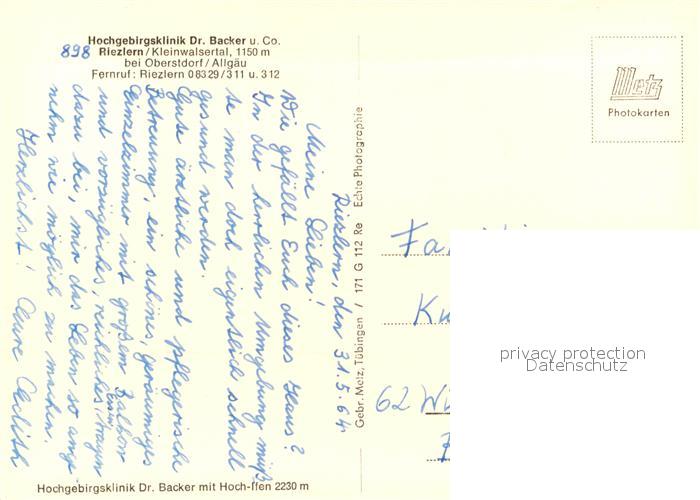 898
Hochgebirgsklinik Dr. Backer u. Co.
Riezlern / Kleinwalsertal, 1150 m
bei Oberstdorf / Allgäu
Fernruf: Riezlern 08329/311 u. 312
Riezlern, den 31.5.64
Meine Lieben!
Wie gefällt Euch dieses Haus?
In der herrlichen Umgebung muß
te man doch eigentlich schnell
gesund werden.
Gute ärztliche und pflegerische
Betreuung, ein schönes, geräumiges
Einzelzimmer mit großem Balkon
und vorzügliches, reichliches Essen tragen
dazu bei, mir das Leben so ange-
nehm wie möglich zu machen.
Herzlichst! Eure
Gebr. Metz, Tübingen / 171 G 112 Re Echte Photographie
Metz
Photokarten
Fa
Ku
62 Wi
privacy protection
Datenschutz
Hochgebirgsklinik Dr. Backer mit Hoch-ffen 2230 m